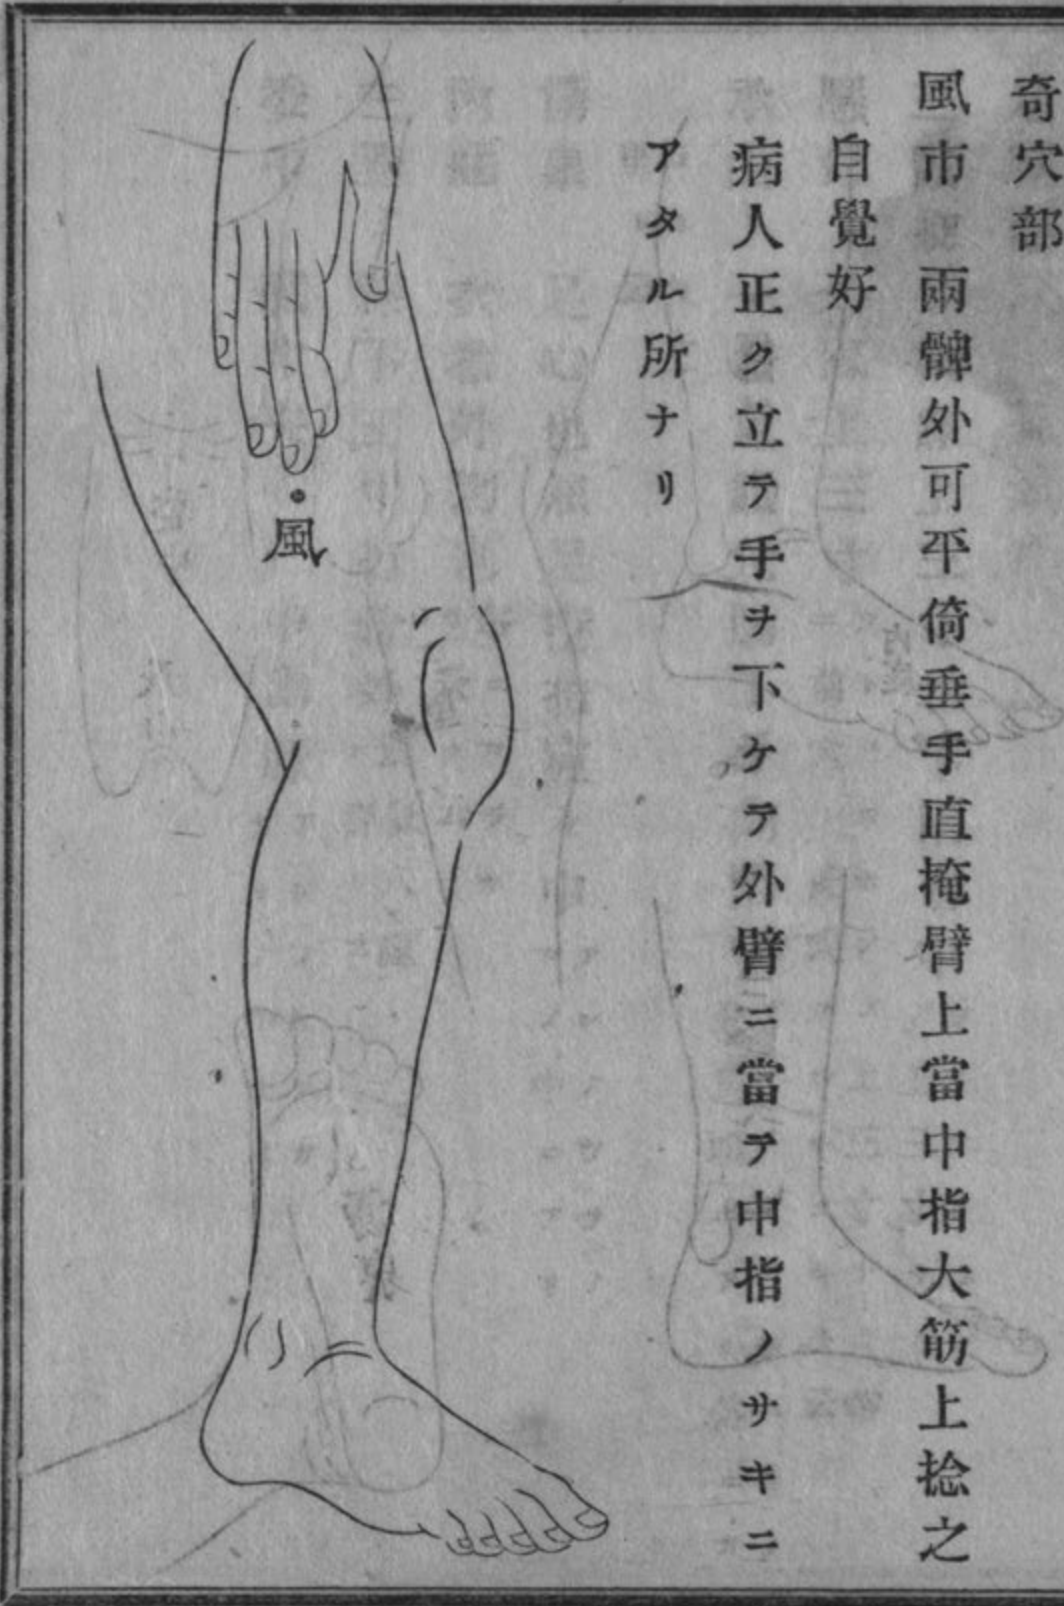 奇穴部
風市 兩髀外可平倚垂手直掩臂上當中指大筋上捻之
自覺好
病人正ク立テ手ヲ下ケテ外臂ニ當テ中指ノサキニ
アタル所ナリ
風